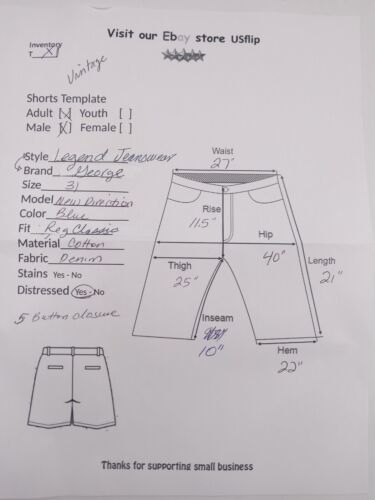 Visit our Ebay store USflip
Inventory
T X
Vintage
Shorts Template
Adult [X] Youth [ ]
Male [X] Female [ ]
Style Legend Jeanswear
Brand George
Size 31
Model New Direction
Color Blue
Fit Reg Classic
Material Cotton
Fabric Denim
Stains Yes - No
Distressed Yes - No
5 Button closure
Waist
27"
Rise
11.5"
Hip
40"
Thigh
25"
Length
21"
Inseam
10"
Hem
22"
Thanks for supporting small business